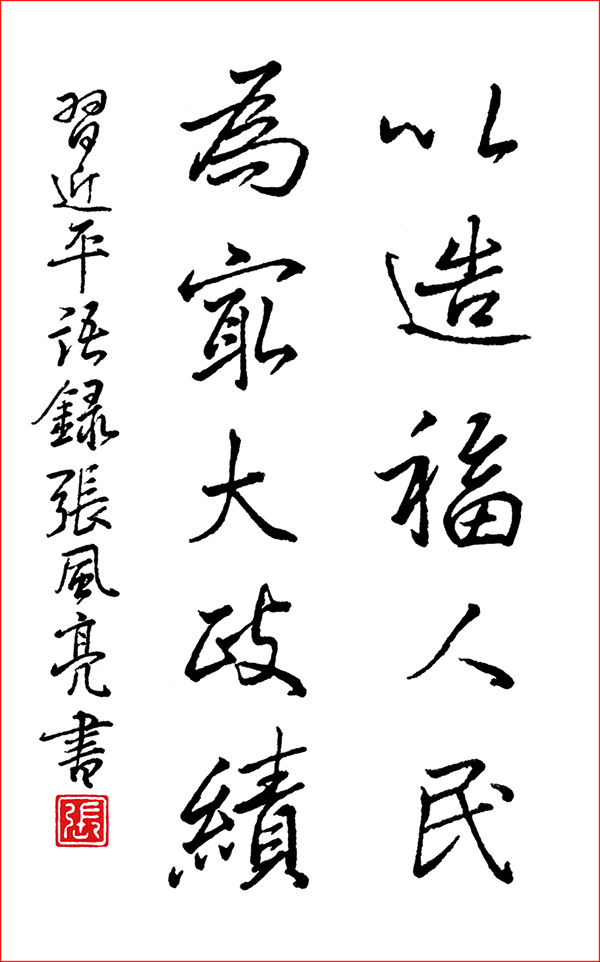 以造福人民
為最大政績
習近平語録張風亮書
張